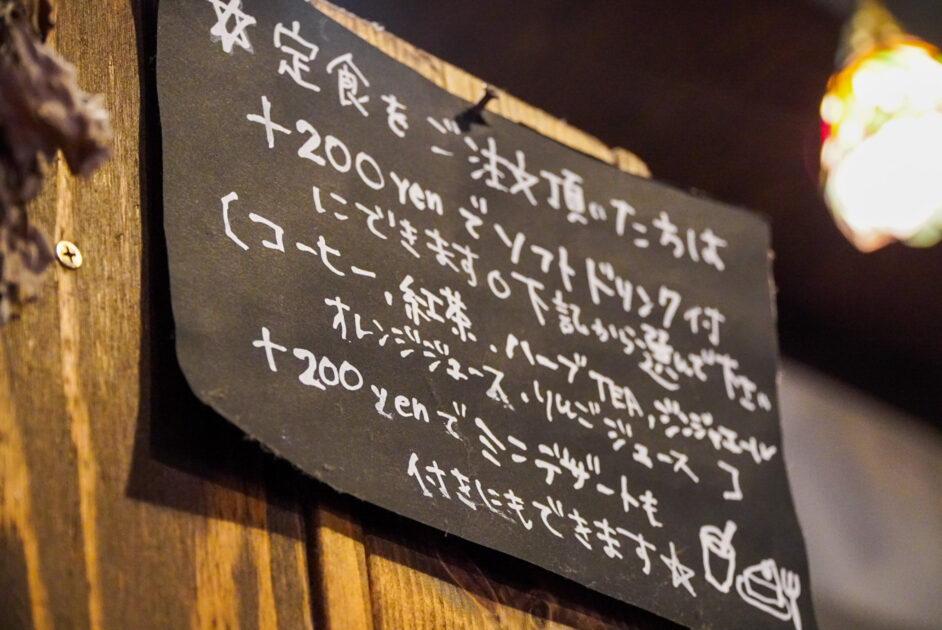 ☆定食をご注文頂いた方は
+200yenでソフトドリンク付
にできます。下記から選んで下さい
(コーヒー、紅茶、ハーブTEA、ジンジャエール
オレンジジュース、りんごジュース]
+200yenでミニデザートも
付きにもできます☆